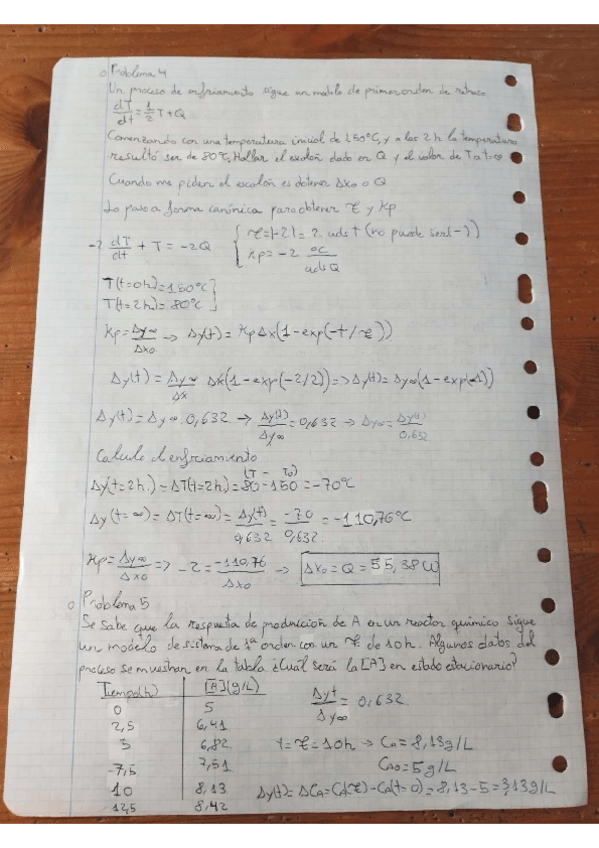 Problema 4
Un proceso de enfriamiento sigue un modelo de primer orden de retraso
dT/dt = 1/2 T + Q
Comenzando con una temperatura inicial de 150°C, y a las 2h la temperatura
resultó ser de 80°C, Hallar el escalón dado en Q y el valor de T a t=∞
Cuando me piden el escalón es obtener Δx₀ o Q
Lo paso a forma canónica para obtener τ y Kp
-2 dT/dt + T = -2Q { τ=|-2|= 2 uds t (no puede ser(-))
Kp= -2 °C/uds Q
T(t=0h)=150°C
T(t=2h)= 80°C
Kp= Δy∞/Δx₀ => Δy(t)= KpΔx(1-exp(-t/τ))
Δy(t)= Δy∞/Δx Δx(1-exp(-2/2))=>Δy(t)=Δy∞(1-exp(-1))
Δy(t)=Δy∞ 0,632 → Δy(t)/Δy∞=0,632 → Δy∞=Δy(t)/0,632
Calculo el enfriamiento
(T - T₀)
Δy(t=2h)=ΔT(t=2h)=80-150=-70°C
Δy(t=∞)=ΔT(t=∞)=Δy(t)/0,632=-70/0,632=-110,76°C
Kp=Δy∞/Δx₀ => -2=-110,76/Δx₀ → Δx₀=Q=55,38W
Problema 5
Se sabe que la respuesta de producción de A en un reactor químico sigue
un modelo de sistema de 1ª orden con un τ de 10h. Algunos datos del
proceso se muestran en la tabla ¿Cuál será la [A] en estado estacionario?
Tiempo(h) [A](g/L) Δyt/Δy∞ = 0,632
0 5
2,5 6,41
5 6,82 t=τ=10h → Ca=8,13g/L
7,5 7,51 Ca₀=5g/L
10 8,13 Δy(t)=ΔCa=Ca(τ)-Ca(t=0)=8,13-5=3,13g/L
12,5 8,42